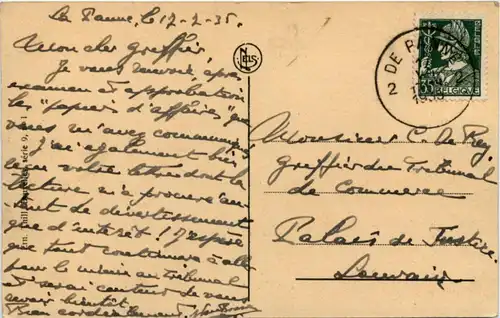 La Panne, le 17-2-35.
Mon cher greffier,
Je vous renvoie, après
examen et approbation
les "papiers d'affaires" que
vous m'avez communiqués.
J'ai également bien
votre lettre dont la
lecture m'a procuré au-
tant de divertissement
que d'intérêt ! J'espère
que tout continuera à aller
pour le mieux au tribunal
et serai content de vous
revoir bientôt.
Bien cordialement,
NELS
DE PANNE
2
1935
35
BELGIQUE
Monsieur C. de Rey,
Greffier du Tribunal
de Commerce
Palais de Justice
Louvain